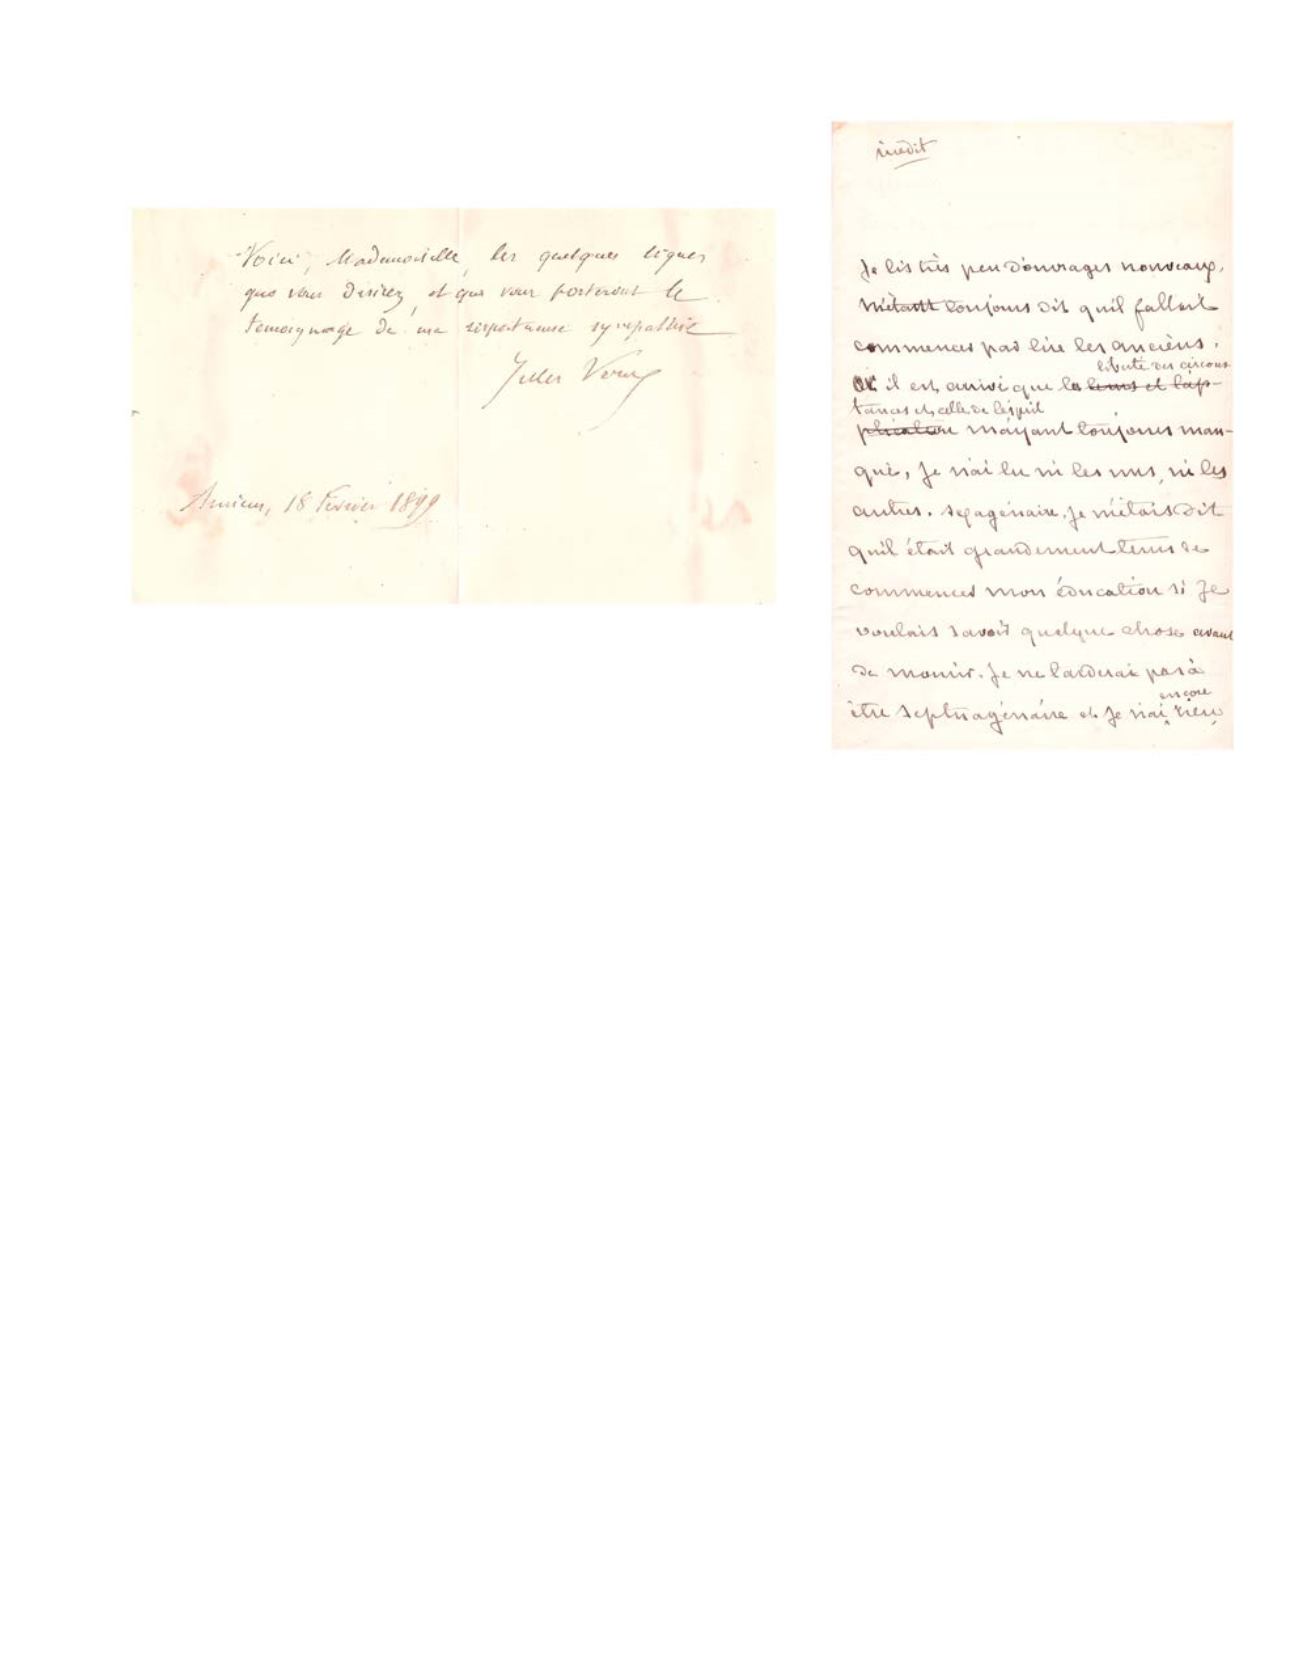 Voici, Mademoiselle, les quelques lignes
que vous désirez, et qui vous porteront le
témoignage de ma respectueuse sympathie
Jules Verne
Amiens, 18 février 1899
inédit
Je lis très peu d'ouvrages nouveaux,
m'étant toujours dit qu'il fallait
commencer par lire les anciens.
liberté des circons
Or il est arrivé que la tems et l'ap-
tances et celle de l'esprit
plication m'ayant toujours man-
qué, Je n'ai lu ni les uns, ni les
autres. sexagénaire, Je m'étais dit
qu'il était grandement tems de
commencer mon éducation si Je
voulais savoir quelque chose avant
de mourir. Je ne tarderai pas à
encore
être septuagénaire et Je n'ai rien